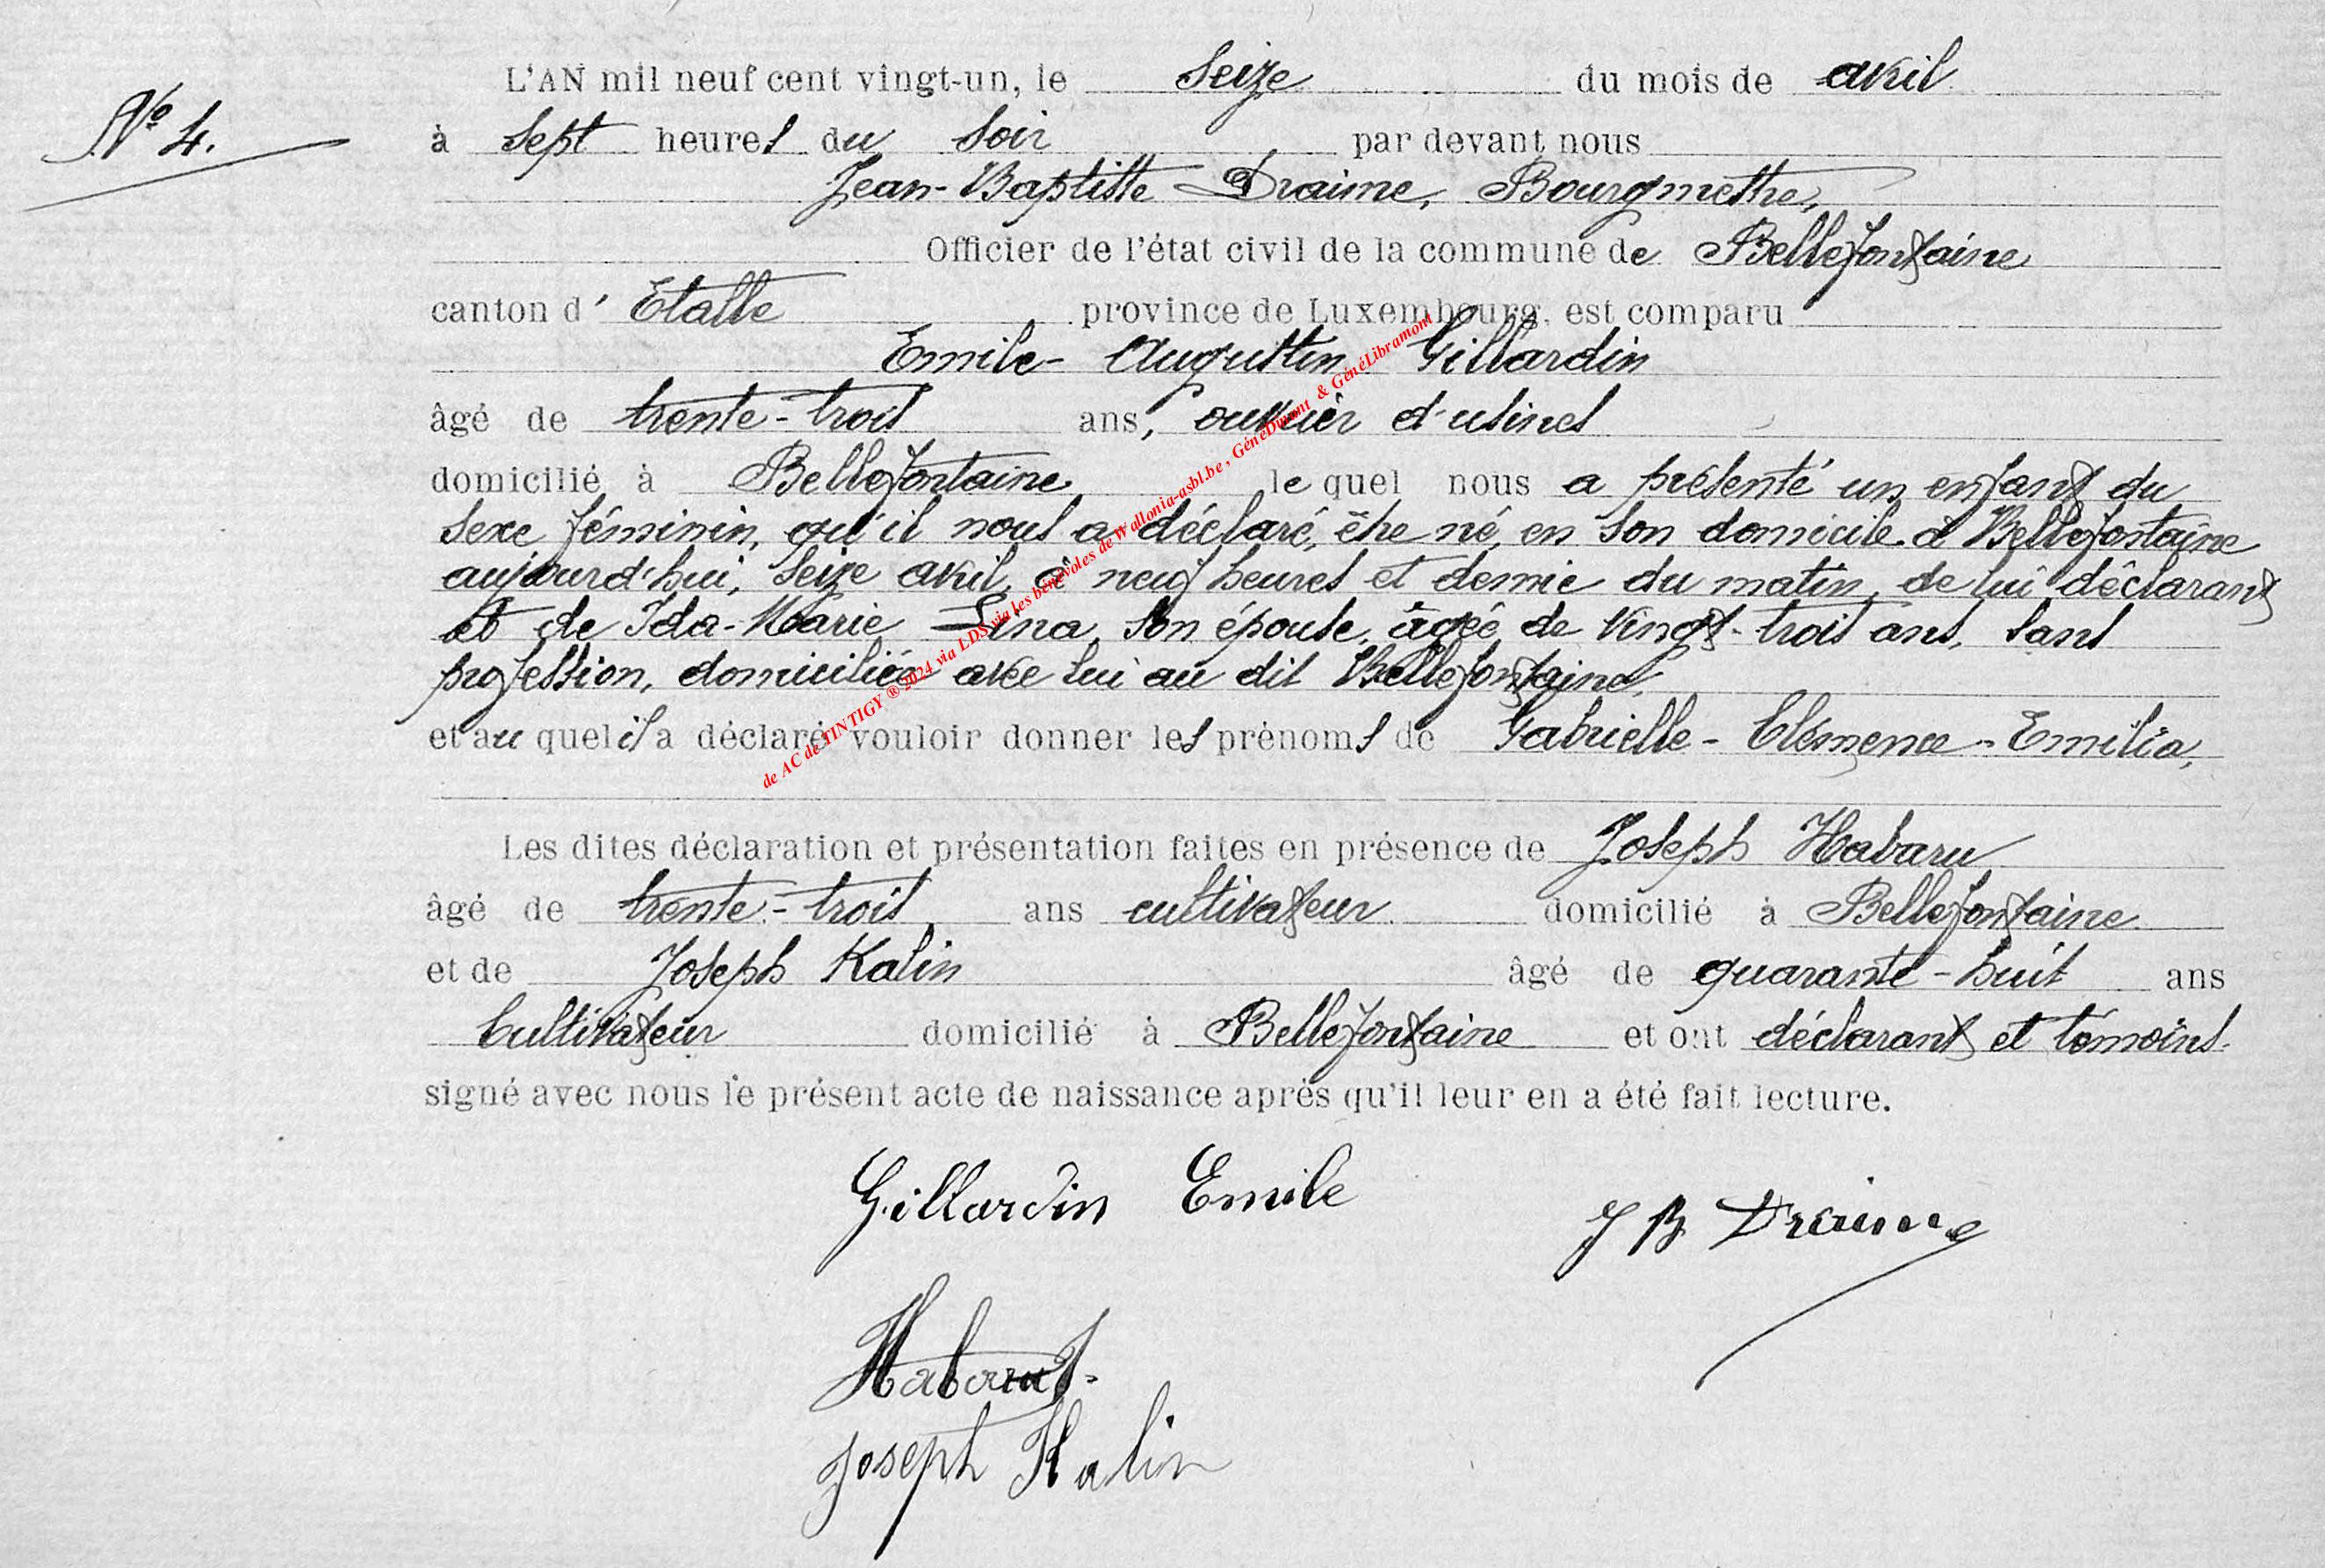 L'AN mil neuf cent vingt-un, le seize du mois de avril
N° 4.
à sept heures du soir par devant nous
Jean-Baptiste Draime, Bourgmestre,
Officier de l'état civil de la commune de Bellefontaine
canton d' Etalle province de Luxembourg, est comparu
Emile-Augustin Gillardin
âgé de trente-trois ans, ouvrier d'usines
domicilié à Bellefontaine le quel nous a présenté un enfant du
sexe féminin, qu'il nous a déclaré, être né, en son domicile à Bellefontaine
aujourd'hui, seize avril, à neuf heures et demie du matin, de lui déclarant
et de Ida-Marie Lina, son épouse, âgée de vingt-trois ans, sans
profession, domiciliée avec lui au dit Bellefontaine,
et au quel il a déclaré vouloir donner les prénoms de Gabrielle-Clémence-Emilia,
Les dites déclaration et présentation faites en présence de Joseph Habaru
âgé de trente-trois ans cultivateur domicilié à Bellefontaine
et de Joseph Kalin âgé de quarante-huit ans
Cultivateur domicilié à Bellefontaine et ont déclarant et témoins
signé avec nous le présent acte de naissance après qu'il leur en a été fait lecture.
Gillardin Emile
J B Draime
Habaru J.
Joseph Kalin
de AC de TINTIGY ® 2024 via LDS via les bénévoles de Wallonia-asbl.be , GénéDinant & GénéLibramont